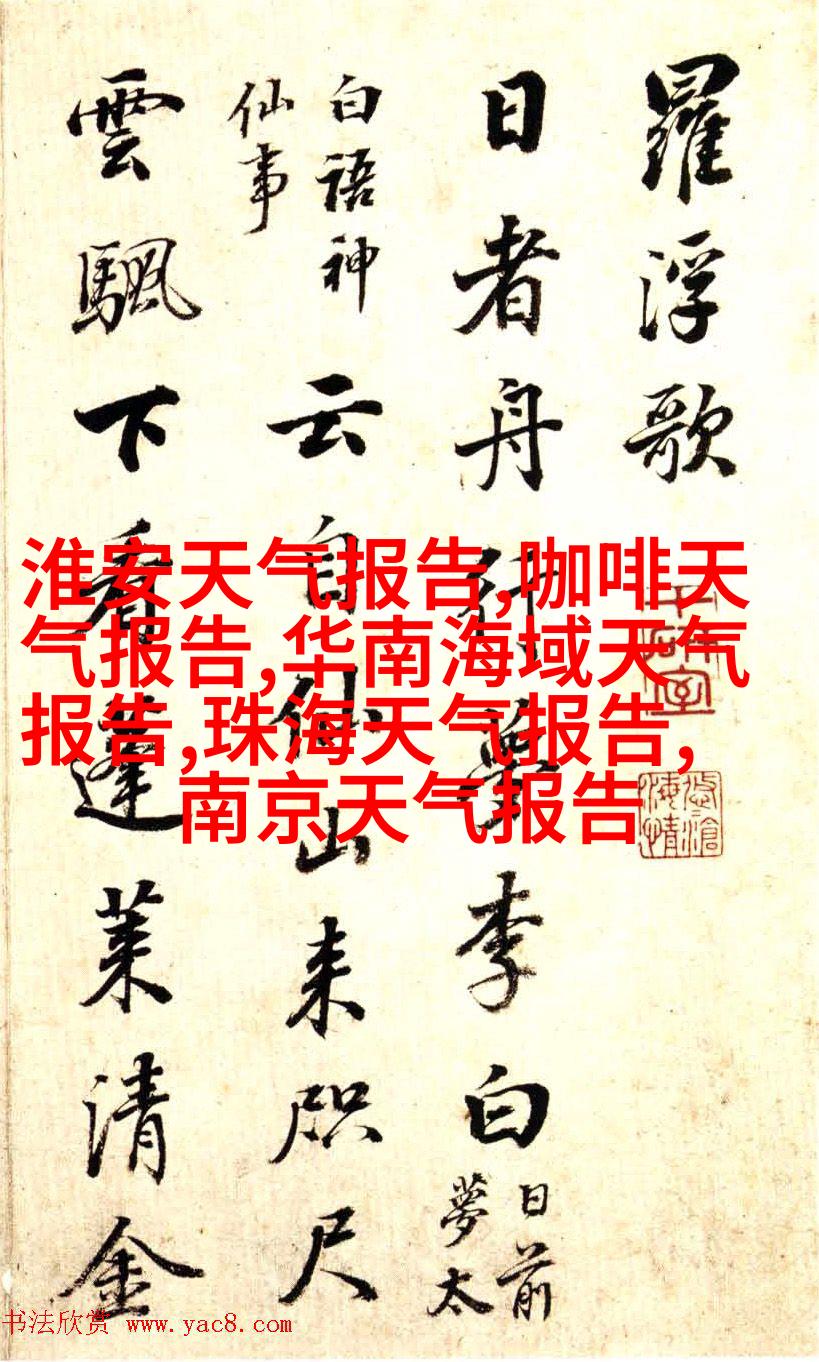 羅浮歌
日者舟行夢李白
日前
夢太
白語神
仙事
云自仙山来咫尺
雲颿下看蓬莱清金
淮安天气报告,咖啡天
气报告,华南海域天气
报告,珠海天气报告,
南京天气报告
书法欣赏 www.yac8.com